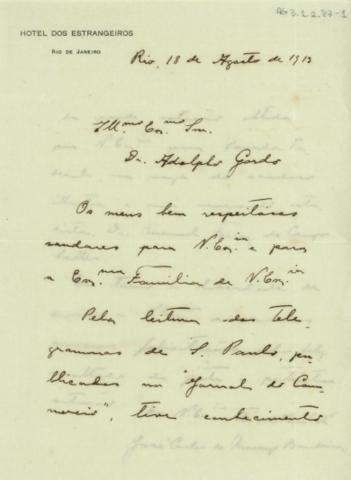 AG3.1.2.87-1
HOTEL DOS ESTRANGEIROS
RIO DE JANEIRO
Rio, 18 de Agosto de 1913
Ill.mo Ex.mo Snr.
Dr. Adolpho Gordo
Os meus bem respeitosos
saudares para V. Ex.ia e para
a Ex.ma Familia de V. Ex.ia
Pela leitura dos tele-
grammas de S. Paulo, pu-
blicados no "Jornal do Com-
mercio", tive conhecimento